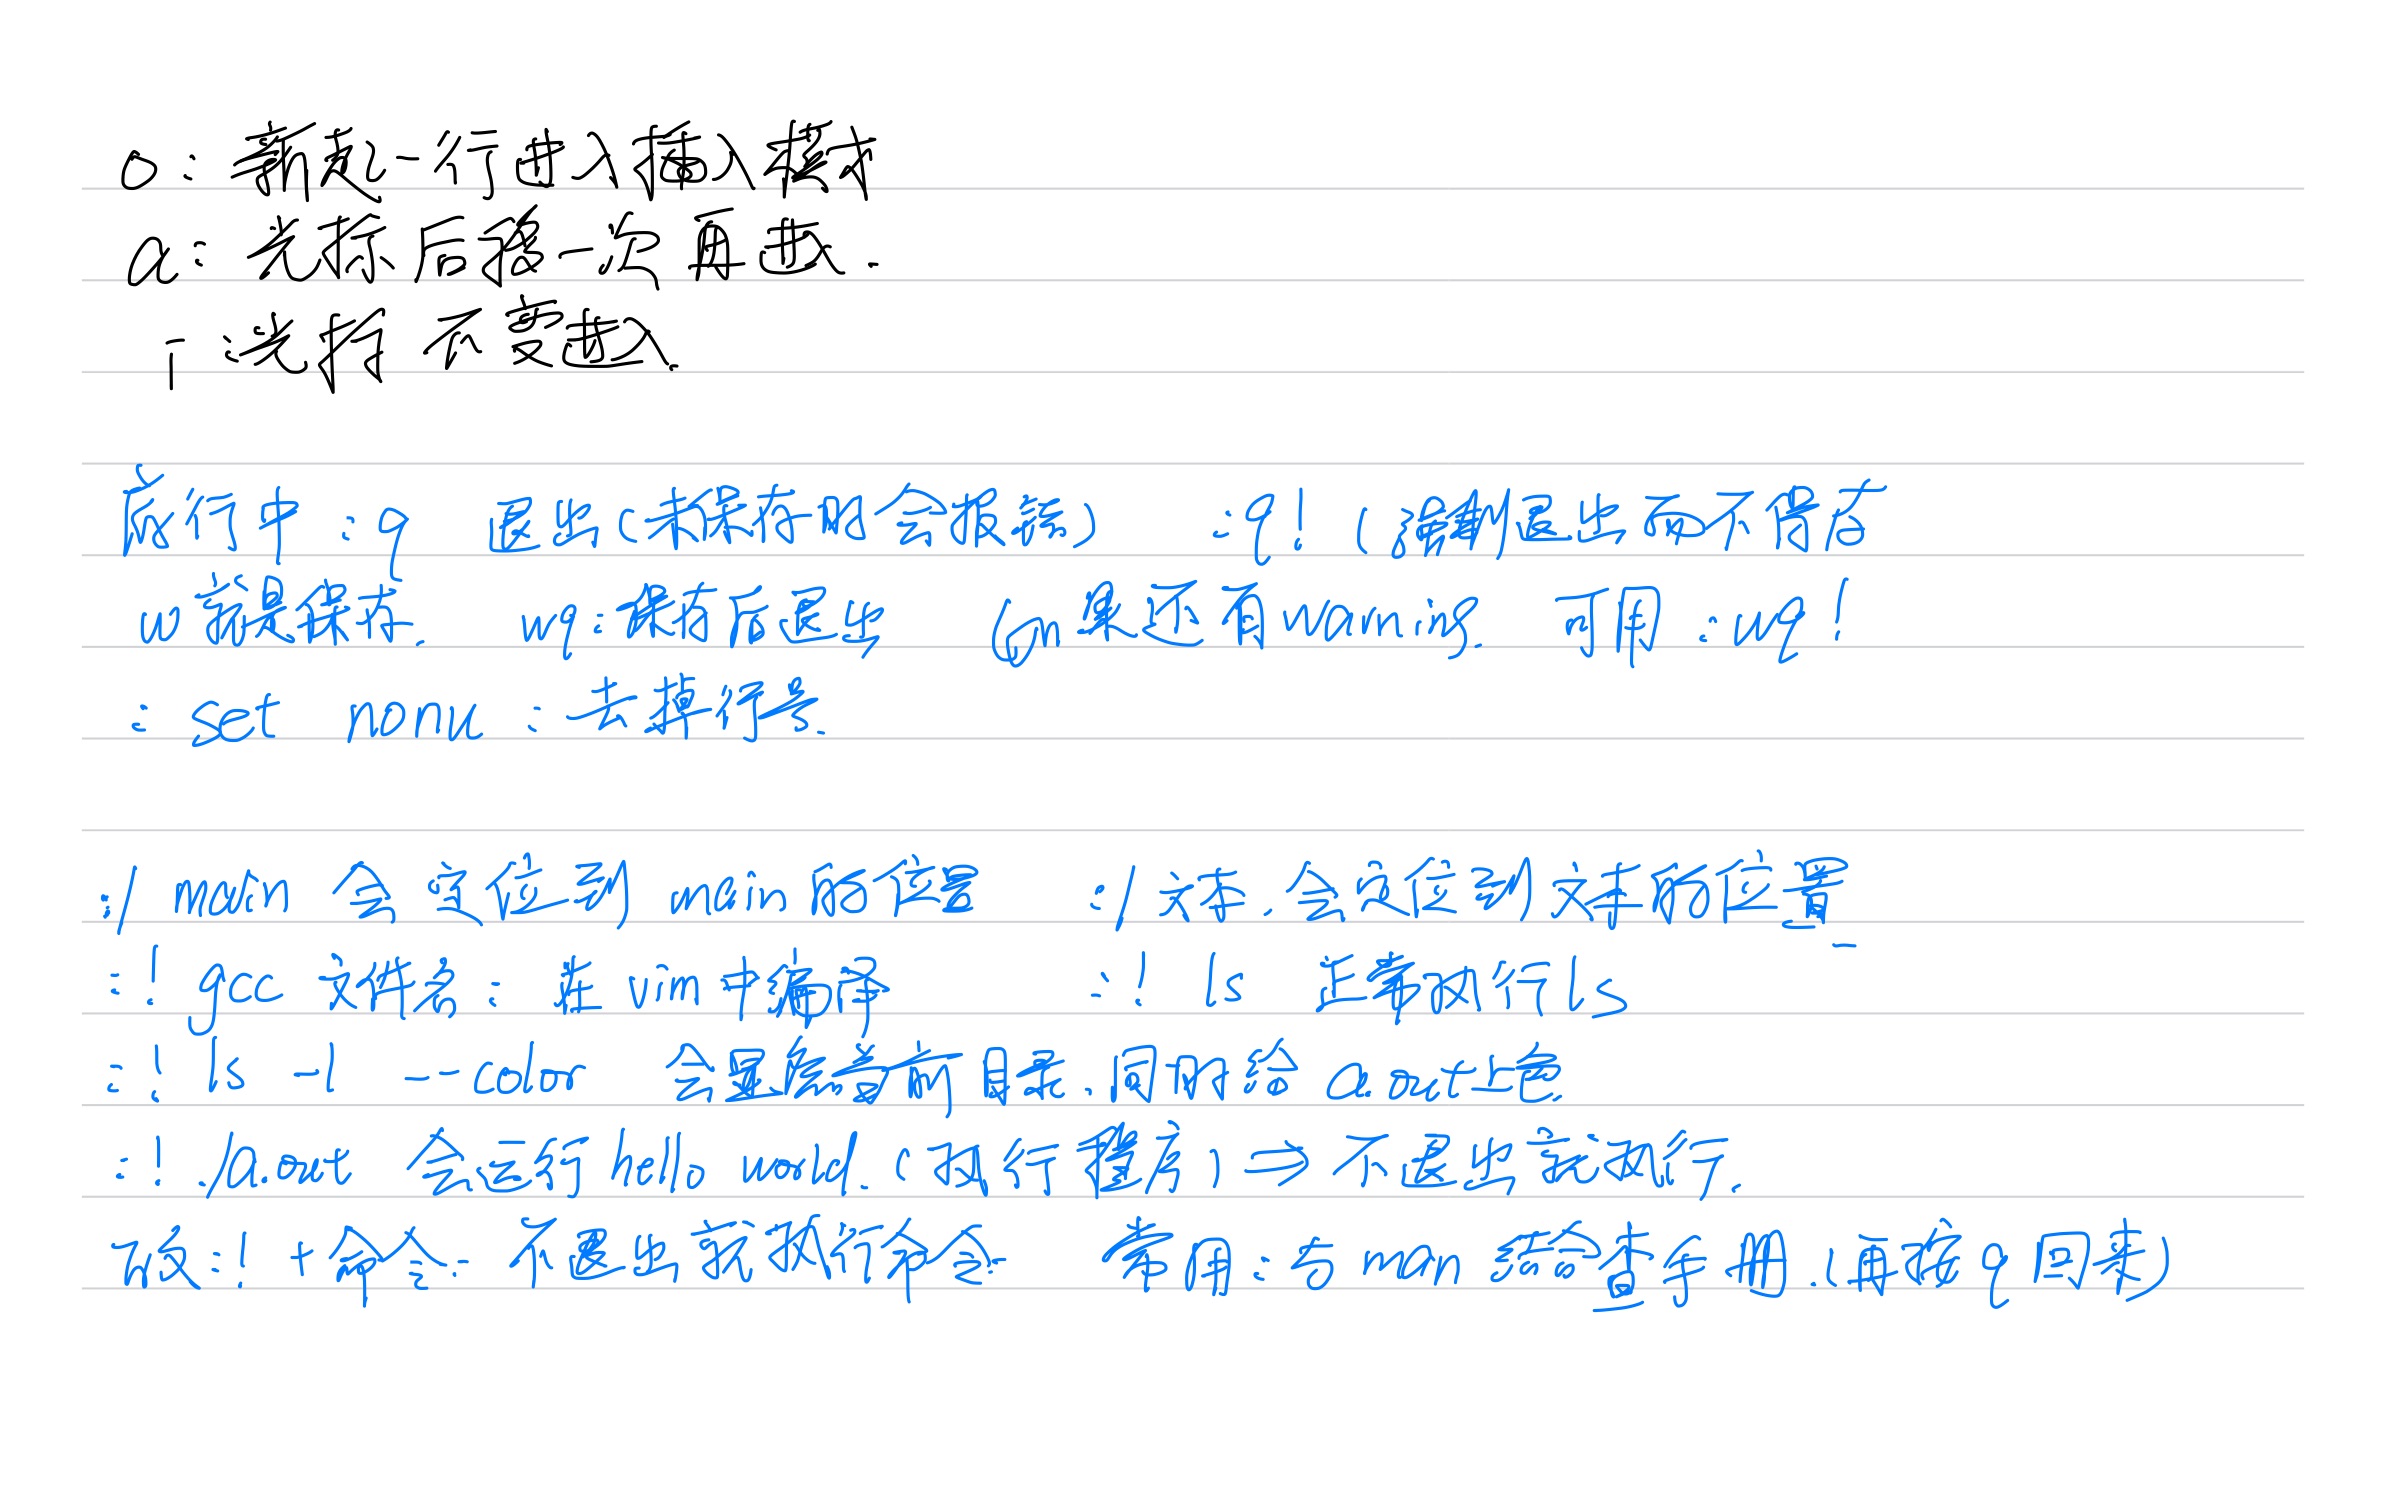 o：新起一行进入插入模式
a：光标后移一次再进入.
i：光标不变进入.
底行中 :q 退出(未保存时会报错) :q! (强制退出而不保存
w就是保存. wq：保存后退出 如果还有warning. 可用 :wq!
: set nonu：去掉行号.
:/ main 会定位到main的位置 :/ 文本. 会定位到文本的位置
:! gcc 文件名：在vim中编译 :! ls 正常执行ls
:! ls -l --color 会显示当前目录.同时给a.out上色
:! ./a.out 会运行hello world. (执行程序) ⇒ 不退出就执行.
:! +命令：不退出就执行命令. 常用：与man 结合查手册.(再按q回来)